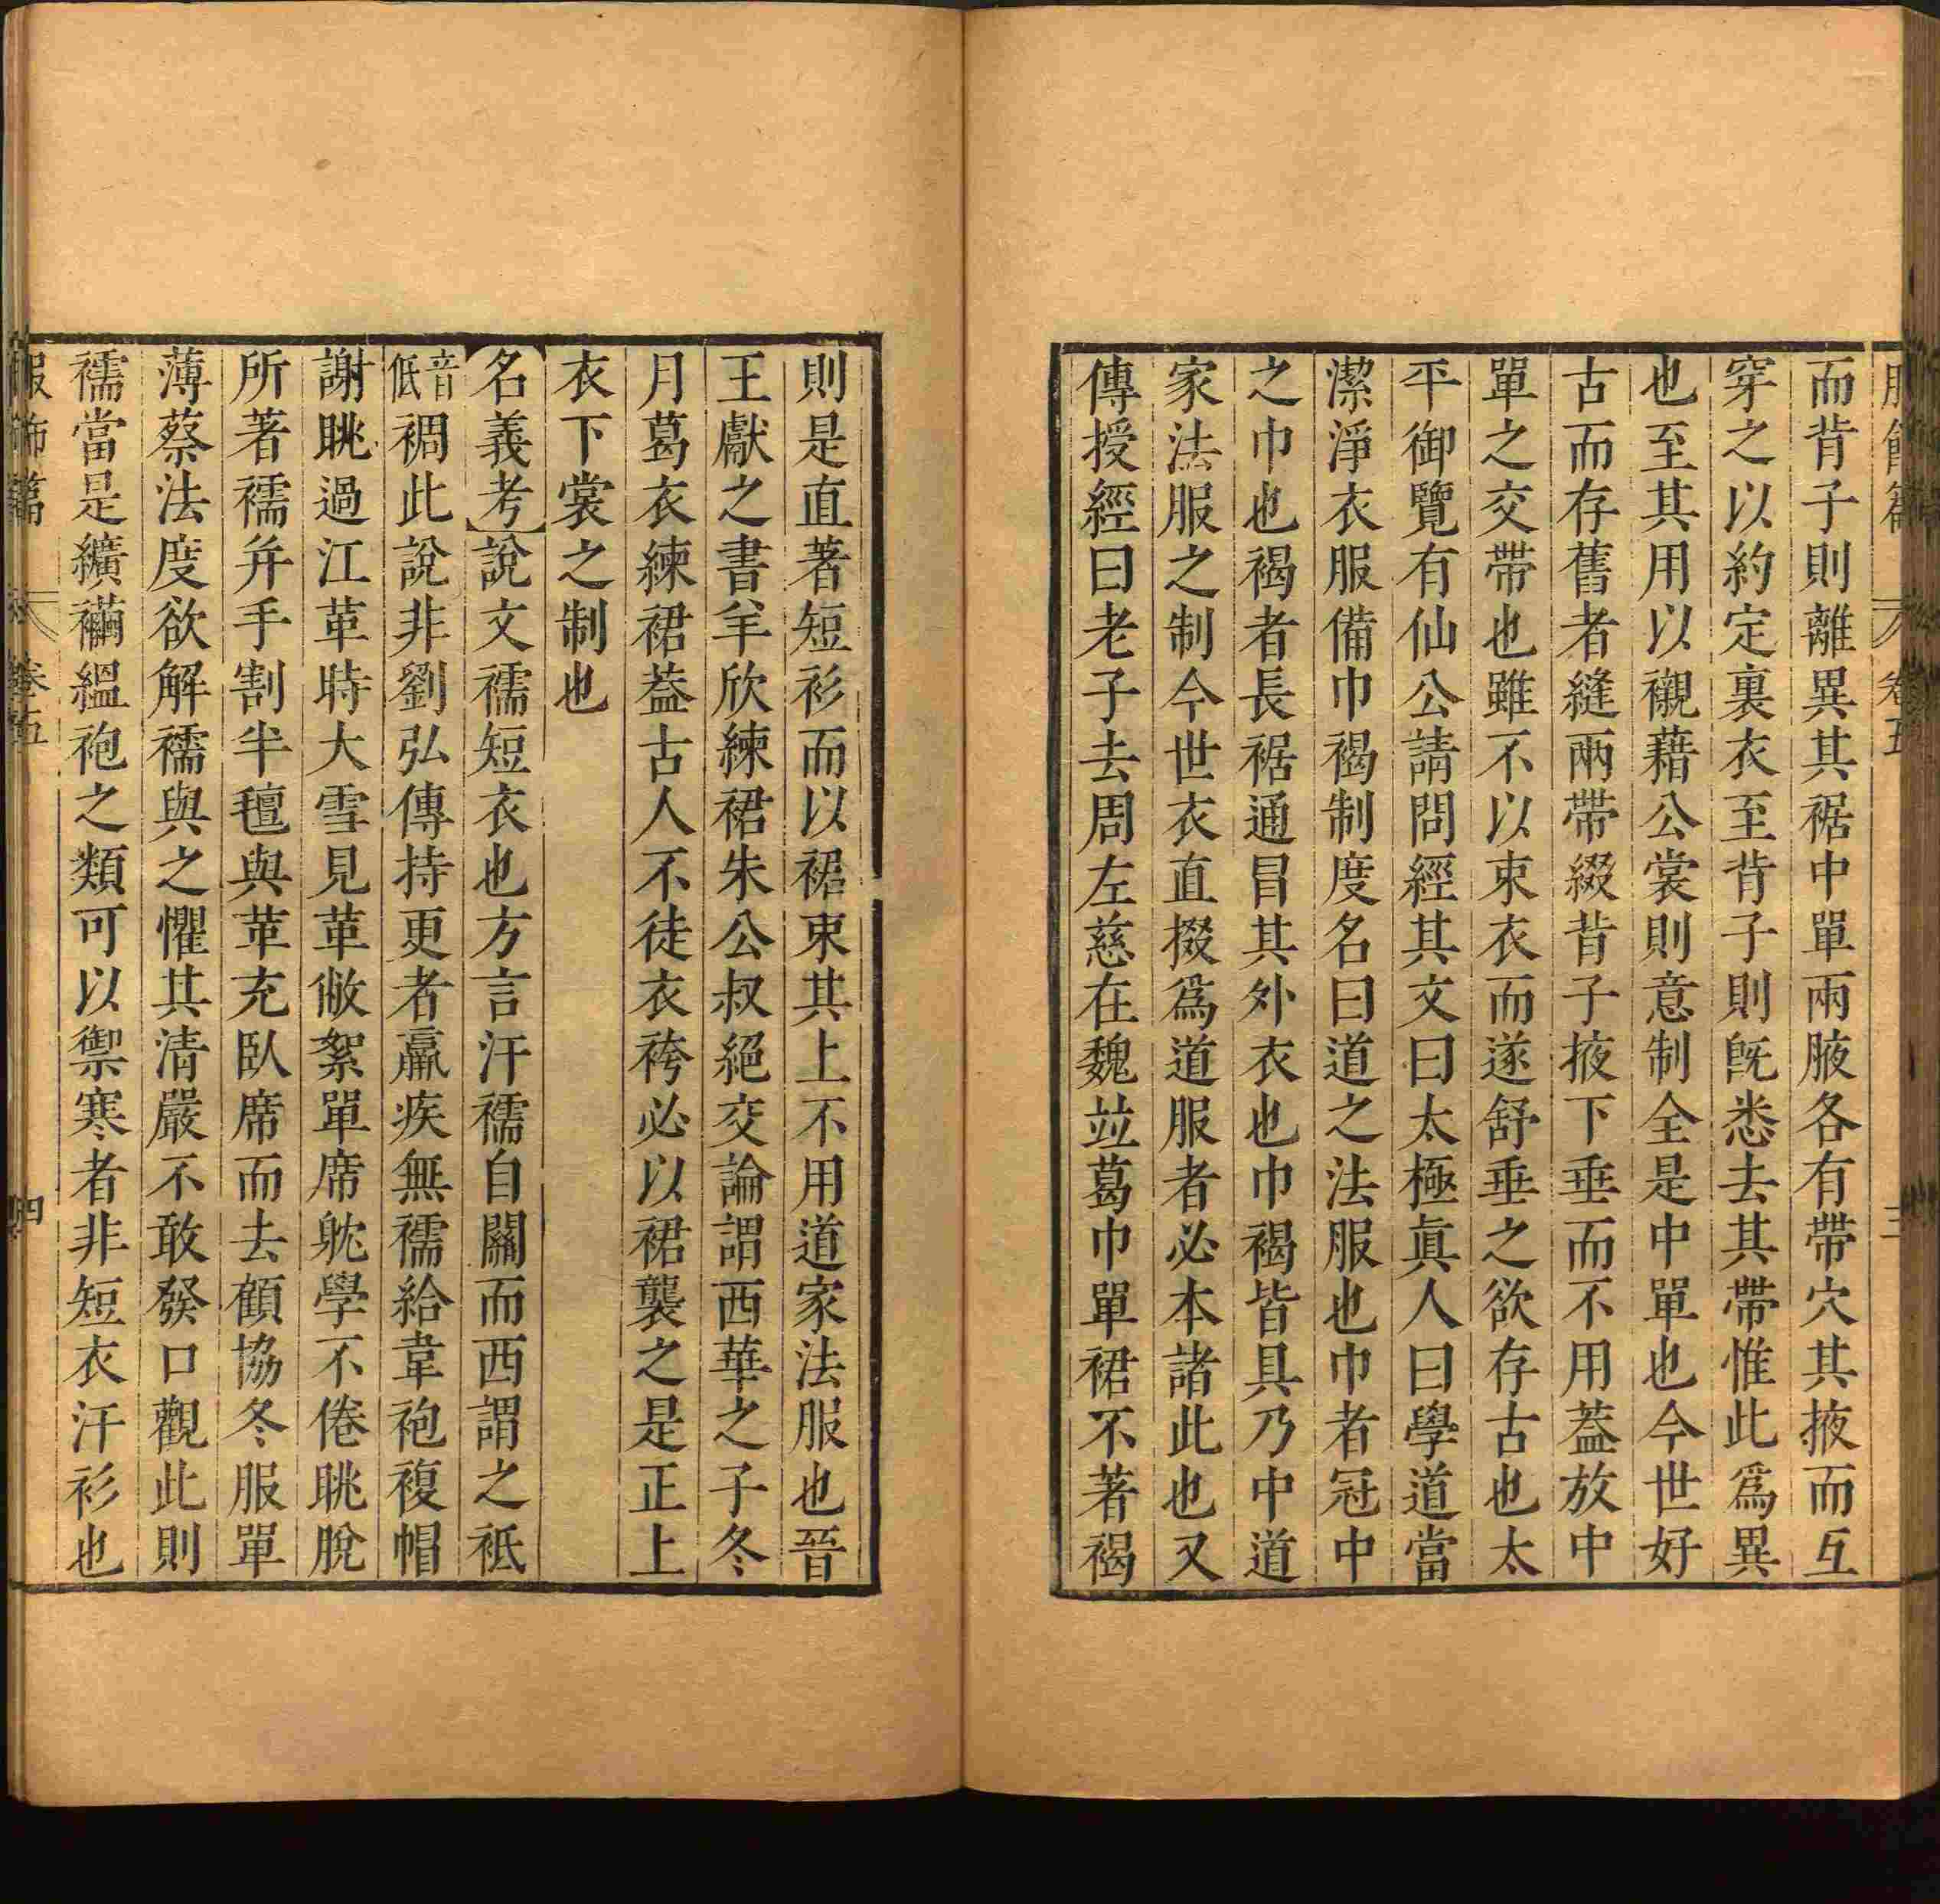 服飾篇 卷五 三
而背子則離異其裾中單兩腋各有帶穴其掖而互
穿之以約定裏衣至背子則旣悉去其帶惟此爲異
也至其用以襯藉公裳則意制全是中單也今世好
古而存舊者縫兩帶綴背子掖下垂而不用葢放中
單之交帶也雖不以束衣而遂舒垂之欲存古也太
平御覽有仙公請問經其文曰太極眞人曰學道當
潔淨衣服備巾褐制度名曰道之法服也巾者冠中
之巾也褐者長裾通冒其外衣也巾褐皆具乃中道
家法服之制今世衣直掇爲道服者必本諸此也又
傳授經曰老子去周左慈在魏竝葛巾單裙不著褐
則是直著短衫而以裙束其上不用道家法服也晉
王獻之書羊欣練裙朱公叔絕交論謂西華之子冬
月葛衣練裙葢古人不徒衣袴必以裙襲之是正上
衣下裳之制也
名義考說文襦短衣也方言汗襦自關而西謂之袛
音低裯此說非劉弘傳持更者羸疾無襦給韋袍複帽
謝眺過江革時大雪見革敝絮單席躭學不倦眺脫
所著襦幷手割半氊與革充臥席而去顧協冬服單
薄蔡法度欲解襦與之懼其淸嚴不敢發口觀此則
襦當是纊襺縕袍之類可以禦寒者非短衣汗衫也
服飾篇 卷五 四